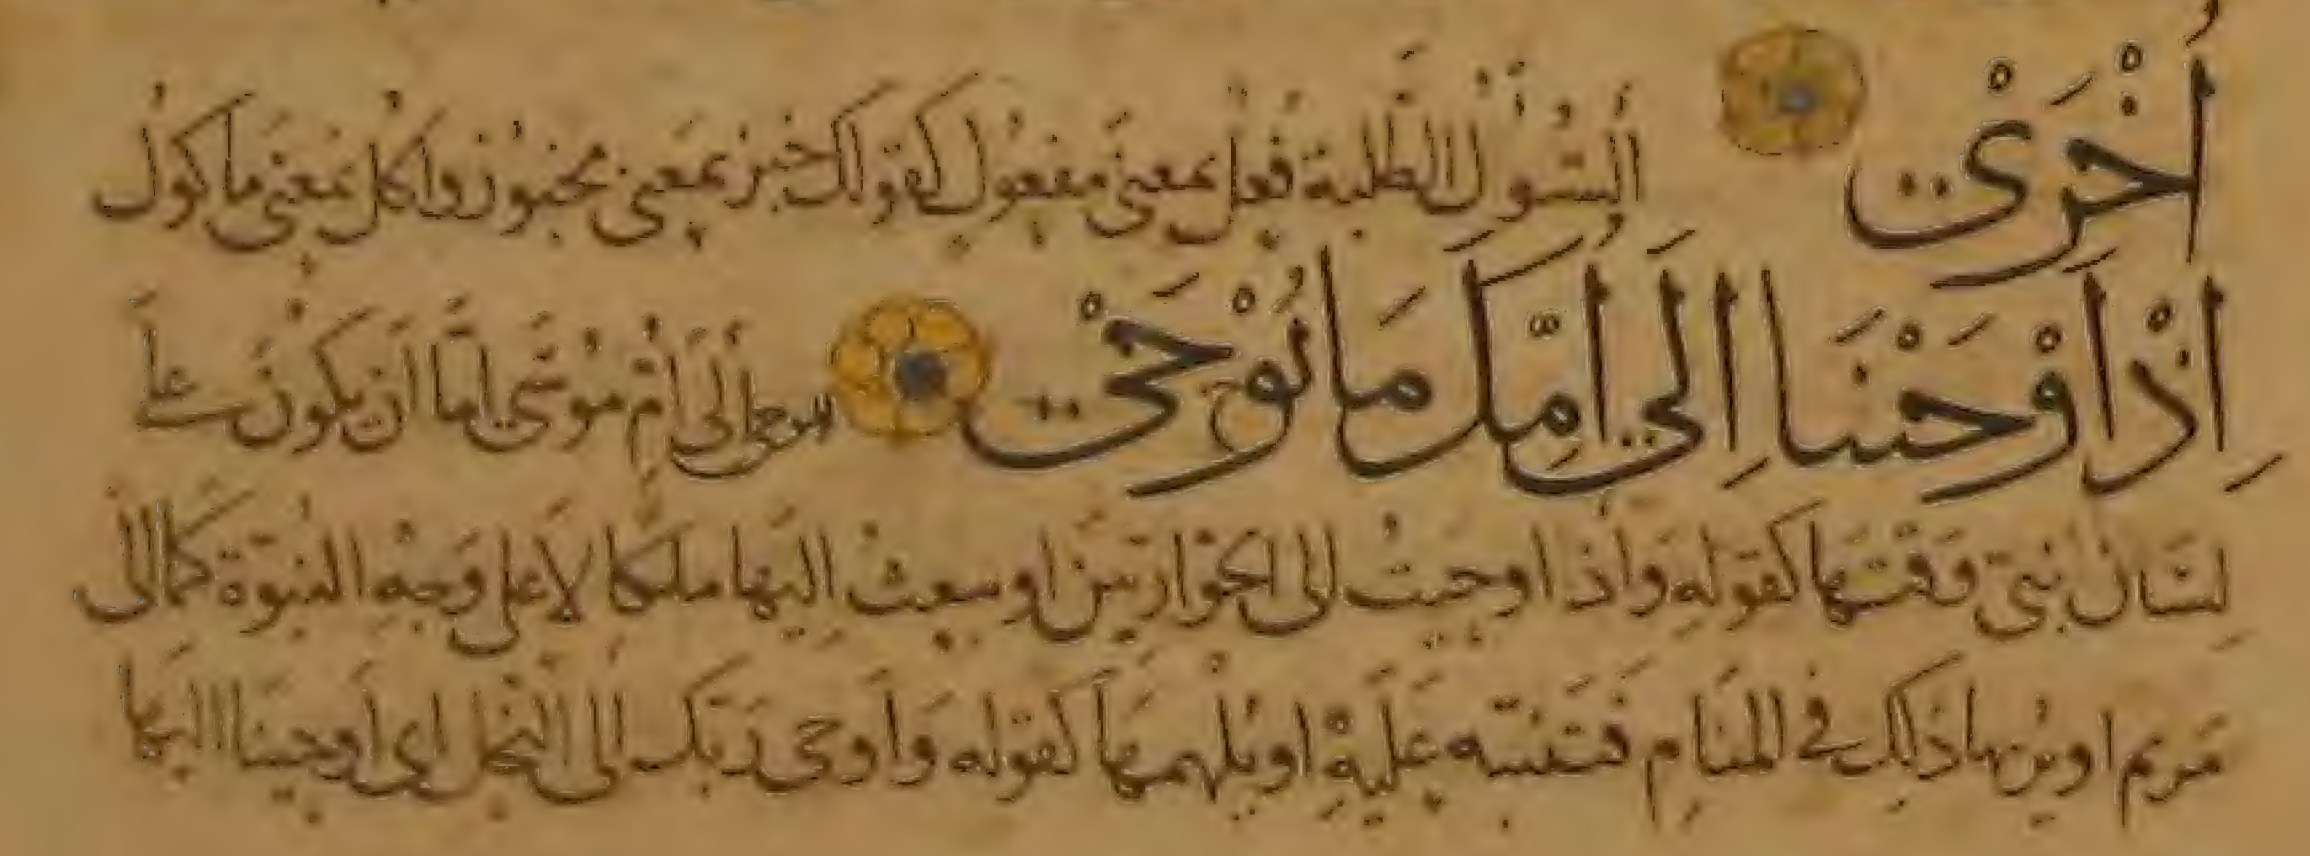 أُخْرَىٰ السُّؤْلُ الطَّلِبة فُعْل بمعنى مفعول كقولك خُبز بمعنى مخبوز واكل بمعنى ماكول
اِذْ اَوْحَيْنَا اِلَىٰ اُمِّكَ مَا يُوْحَىٰ الى اُمّ موسَى اِمّا ان يكون على
لسَان نبىّ وقتها كقوله وَاذا وحيتُ الى الحوَاريّين او يبعث اليها ملكا لا على وَجه النبوّة كما الى
مَريم او يُريها ذلك فى المنَام فتتنبّه عَليه او يُلهمهَا كقوله وَاَوحى ربّك الى النحل اى اوحينا اليها